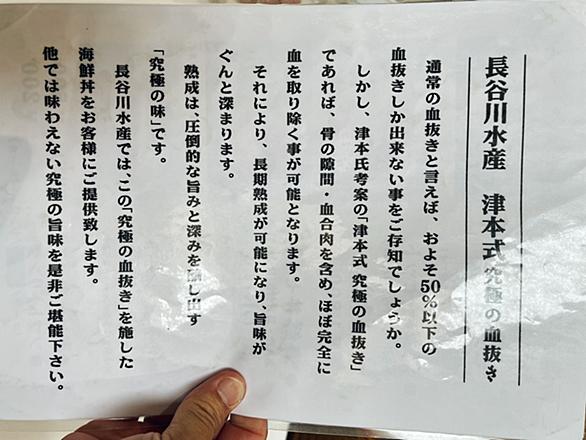 長谷川水産 津本式 究極の血抜き
通常の血抜きと言えば、およそ50%以下の
血抜きしか出来ない事をご存知でしょうか。
しかし、津本氏考案の「津本式 究極の血抜き」
であれば、骨の隙間・血合肉を含め、ほぼ完全に
血を取り除く事が可能となります。
それにより、長期熟成が可能になり、旨味が
ぐんと深まります。
熟成は、圧倒的な旨みと深みを醸し出す
「究極の味」です。
長谷川水産では、この「究極の血抜き」を施した
海鮮丼をお客様にご提供致します。
他では味わえない究極の旨味を是非ご堪能下さい。